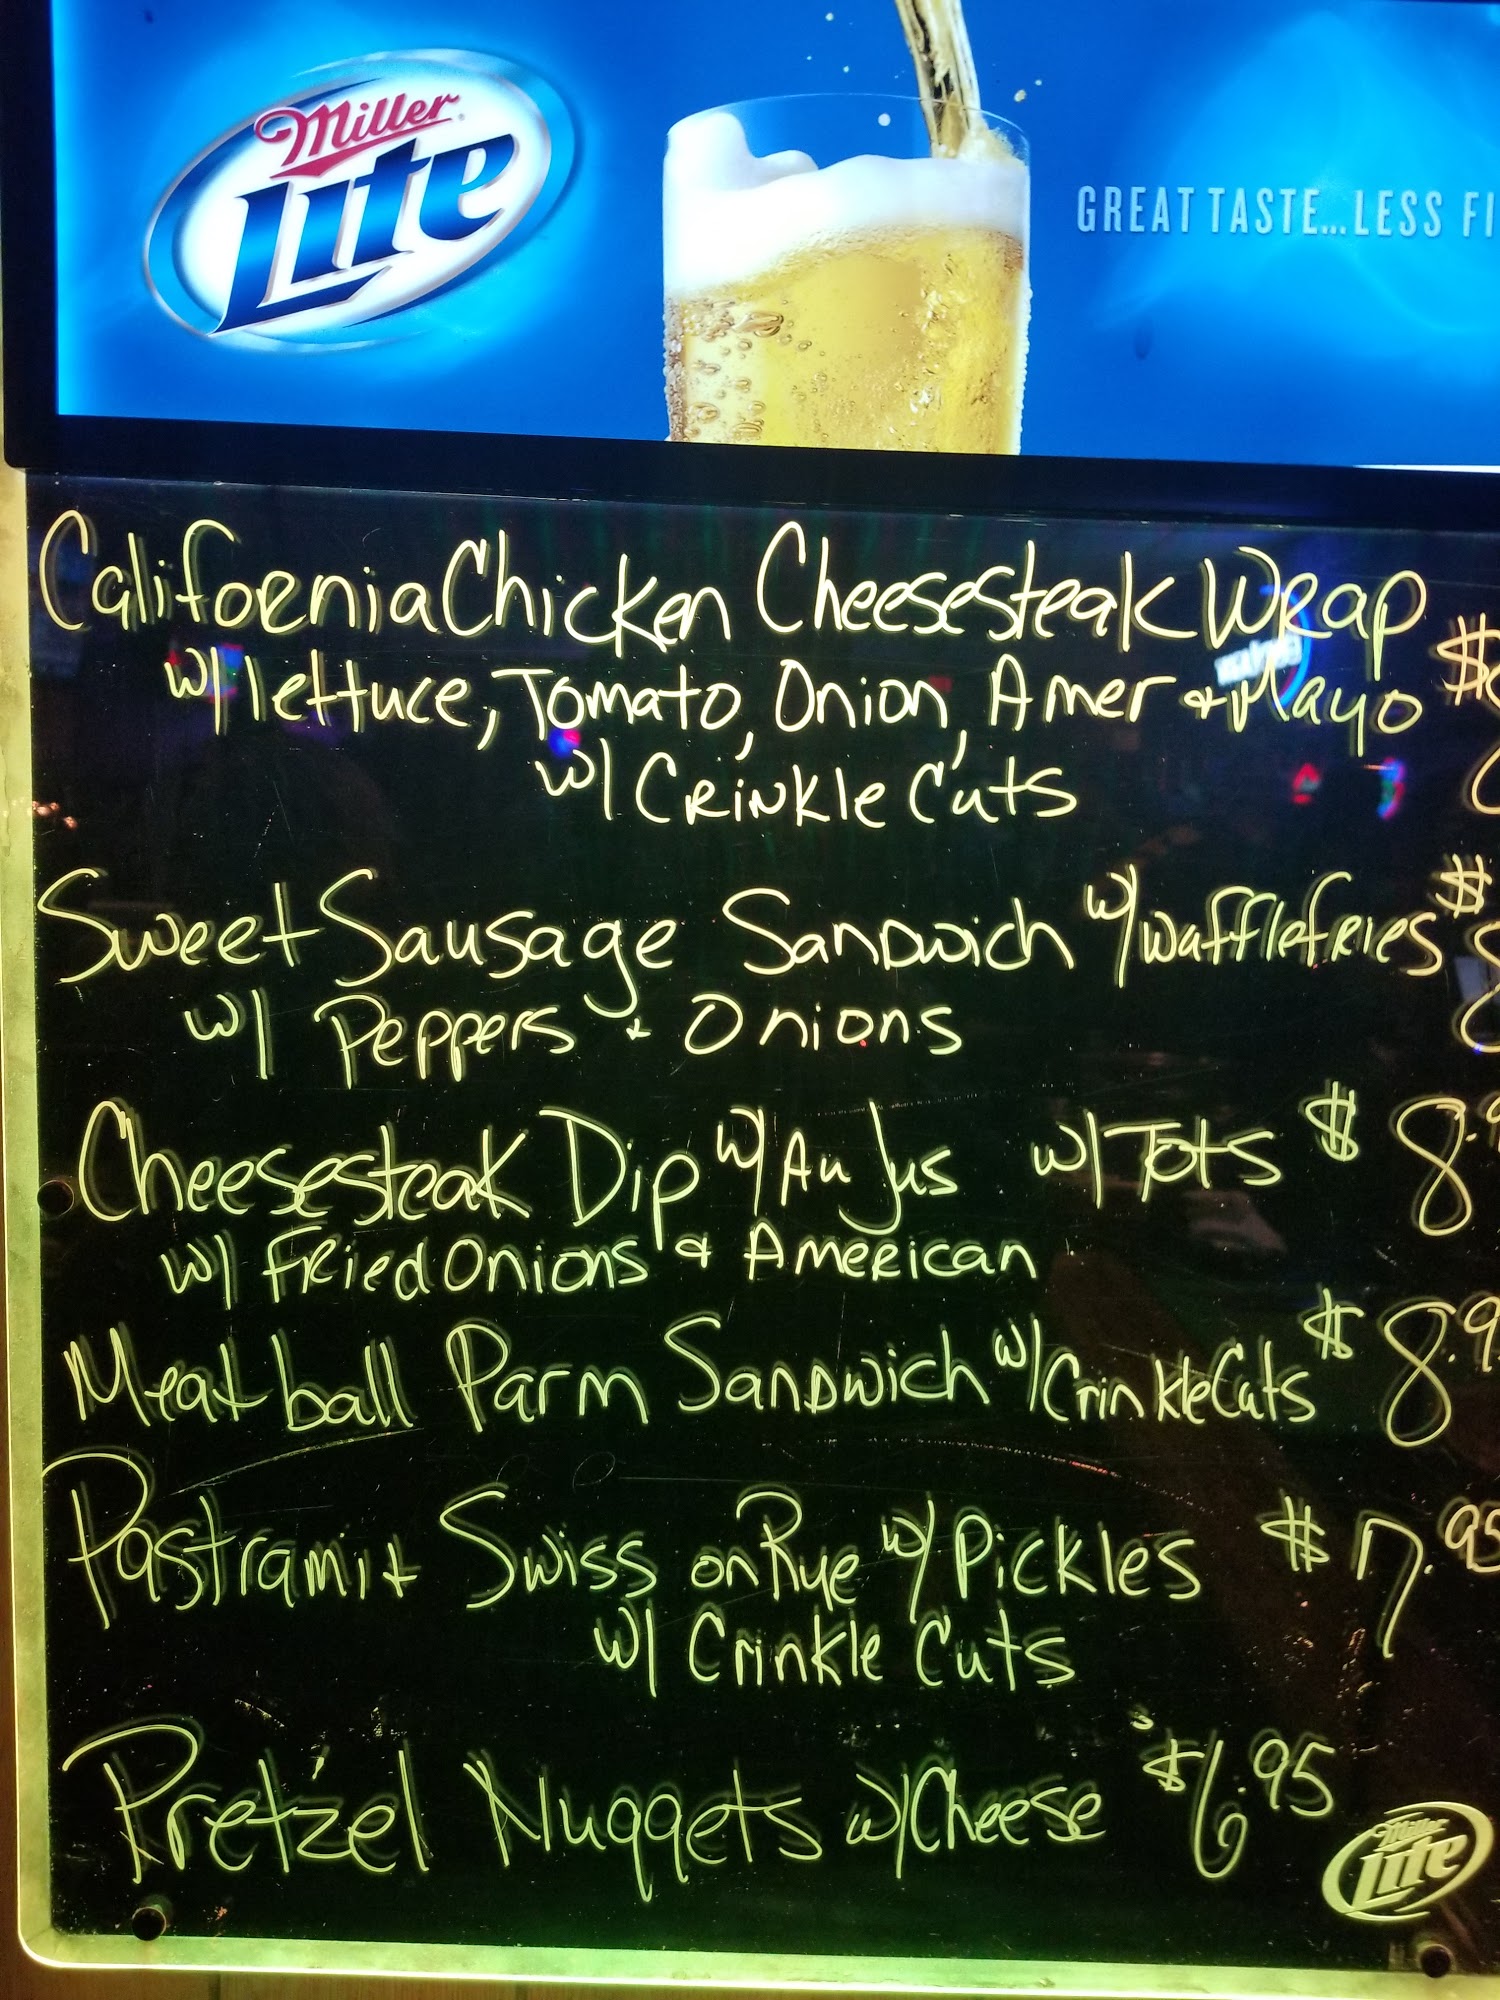 Miller
Lite
GREAT TASTE...LESS FI
California Chicken Cheesesteak Wrap
w/ lettuce, Tomato, Onion, Amer + Mayo $
w/ Crinkle Cuts
Sweet Sausage Sandwich w/ waffle fries $
w/ Peppers + Onions
Cheesesteak Dip w/ Au Jus w/ Tots $ 8.9
w/ Fried Onions & American
Meatball Parm Sandwich w/ Crinkle Cuts $ 8.9
Pastrami + Swiss on Rye w/ Pickles $ 7.95
w/ Crinkle Cuts
Pretzel Nuggets w/ Cheese $6.95
Miller
Lite